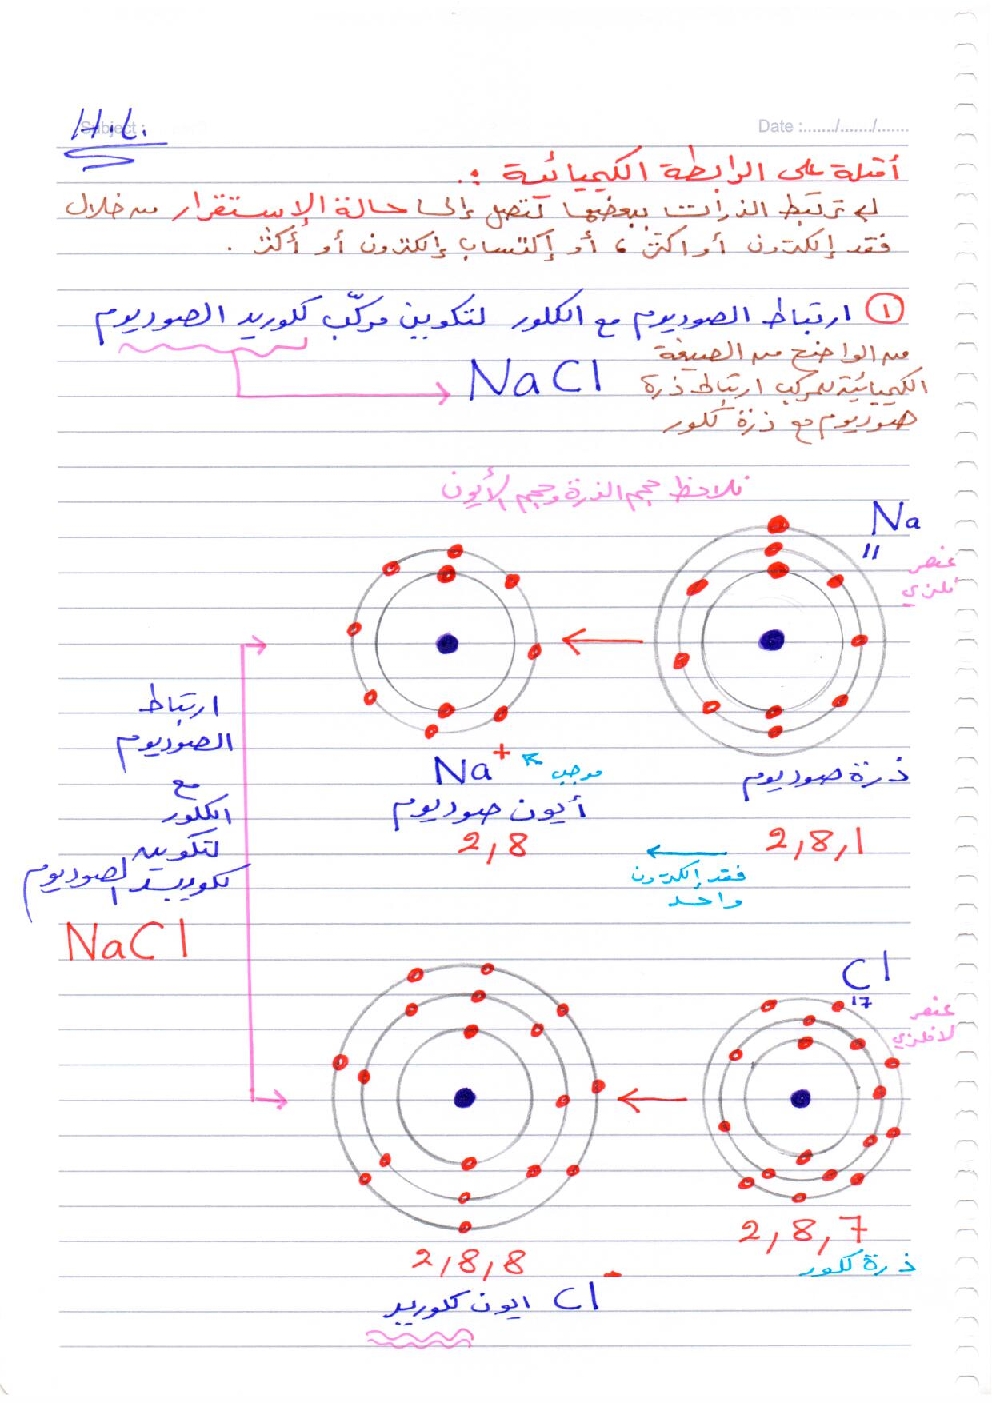 Subject :
H.L.
Date :......./......./.......
أمثلة على الرابطة الكيميائية :.
لم ترتبط الذرات ببعضها لتصل إلى حالة الإستقرار من خلال
فقد إلكترون أو اكثر ، أو إكتساب إلكترون أو أكثر .
١ ارتباط الصوديوم مع الكلور لتكوين مركّب كلوريد الصوديوم
من الواضح من الصيغة
الكيميائية للمركب ارتباط ذرة
صوديوم مع ذرة كلور
NaCl
نلاحظ حجم الذرة وحجم الأيون
Na
11
عنصر
فلزي
ذرة صوديوم
2,8,1
Na+
موجب
أيون صوديوم
2,8
فقد إلكترون
واحد
ارتباط
الصوديوم
مع
الكلور
لتكوين
كلوريد الصوديوم
NaCl
Cl
17
عنصر
لافلزي
2,8,7
ذرة كلور
2,8,8
ايون كلوريد Cl-